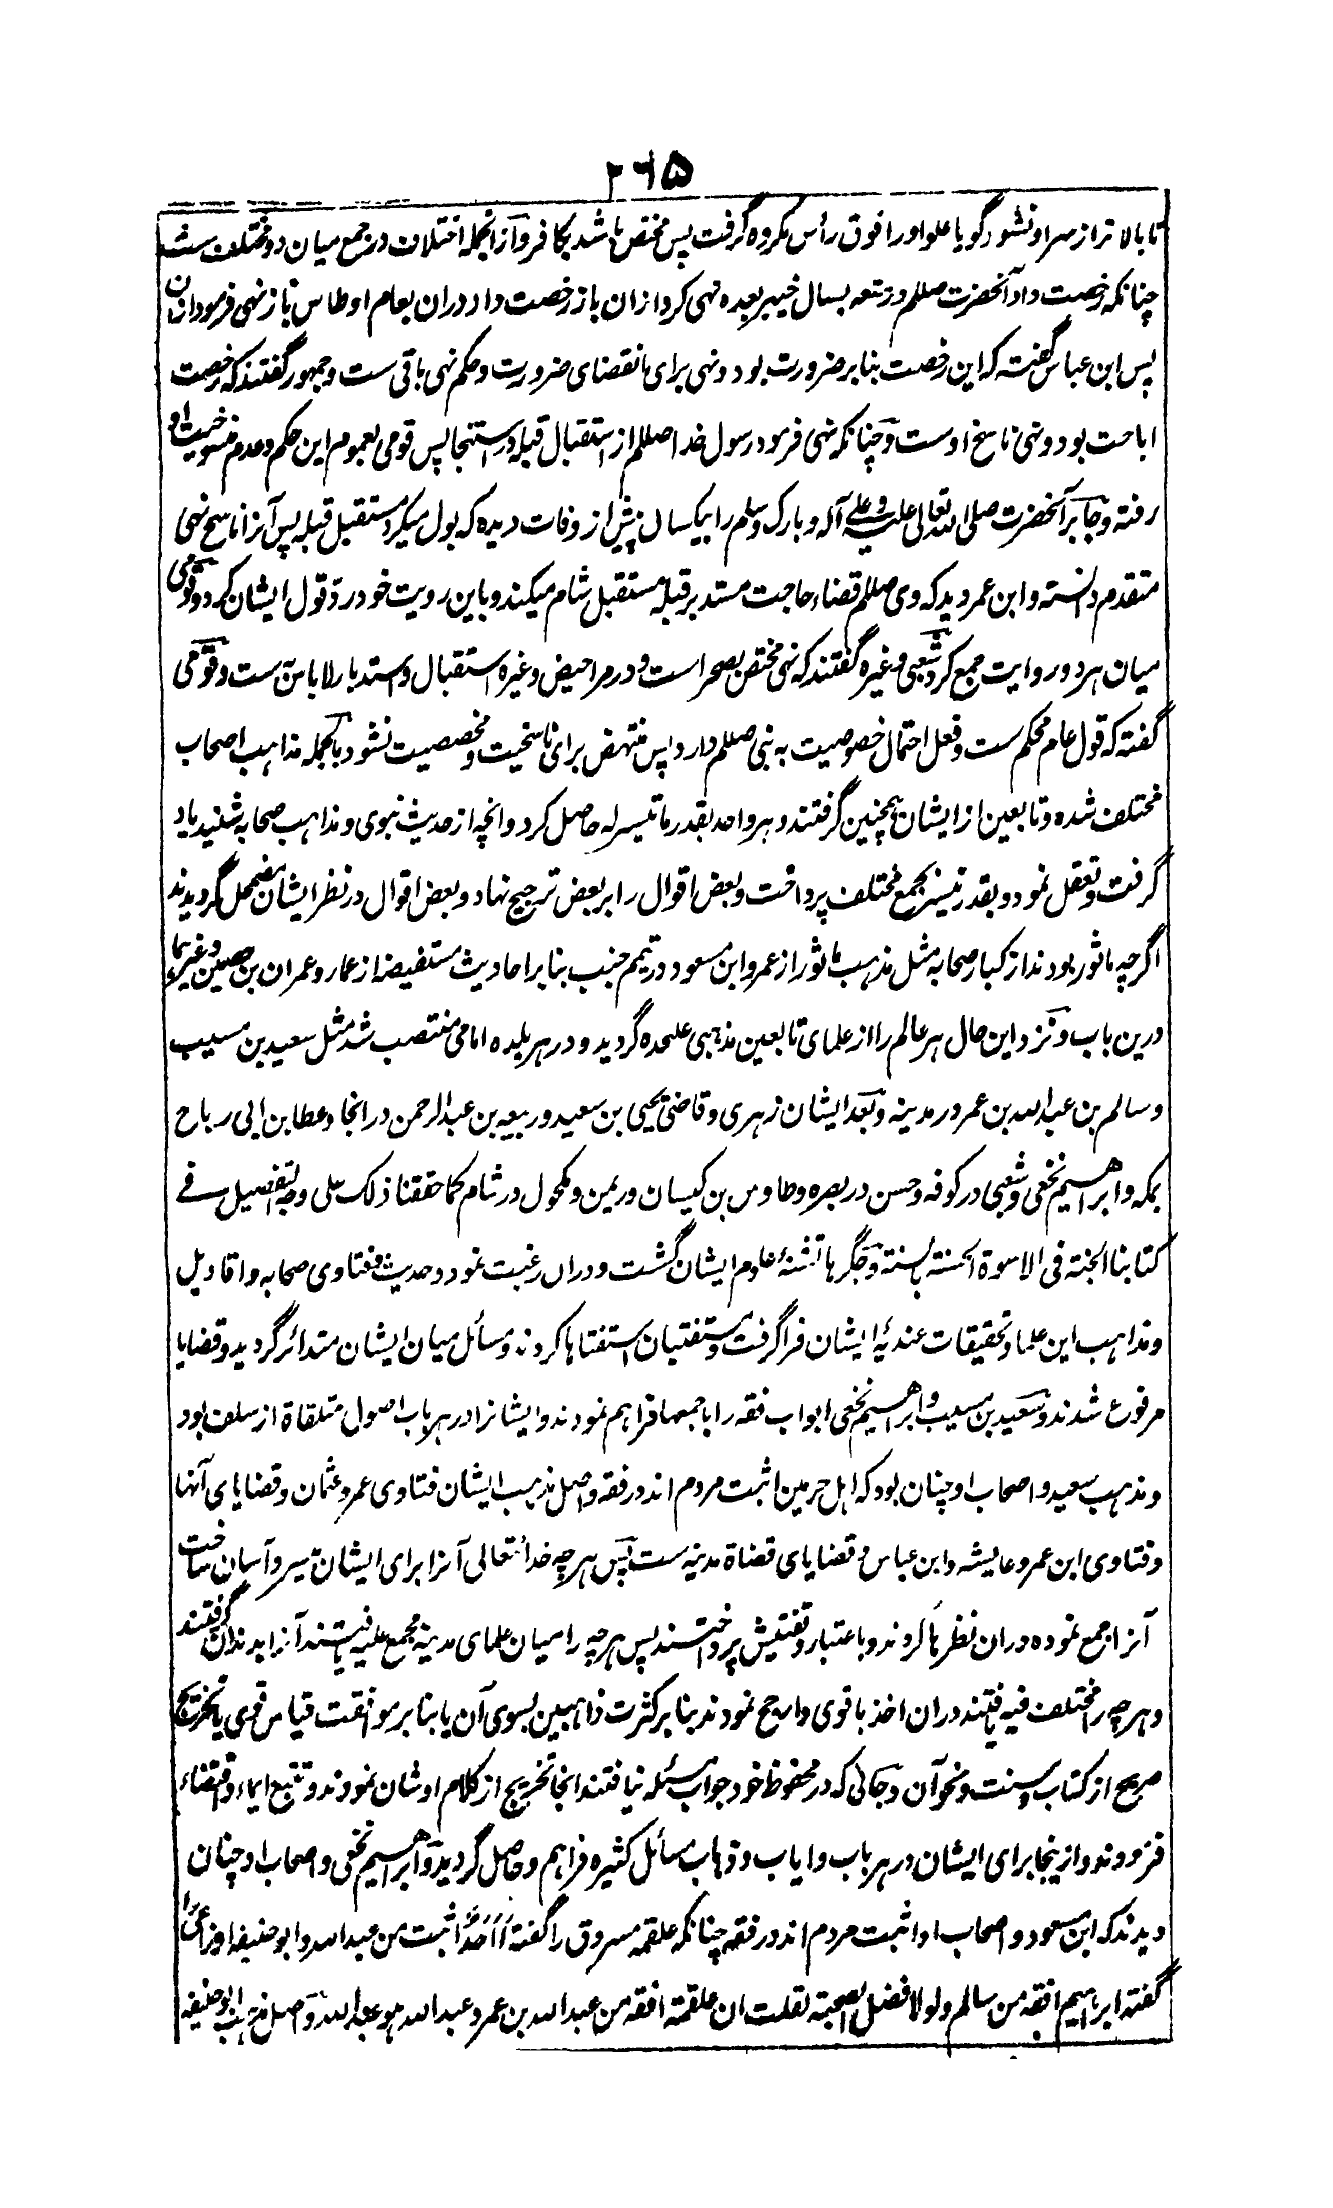 ۲۶۵
تا بالاتر از سر او نشود گویا علو او را فوق رأس مکروه گرفت پس مختص باشد بکافر و از انجمله اختلاف در جمع میان دو مختلف ست
چنانکه رخصت داد آنحضرت صللم در متعه بسال خیبر بعده نهی کرد ازان باز رخصت داد دران بعام اوطاس باز نهی فرمود ازان
پس ابن عباس گفته که این رخصت بنا بر ضرورت بود و نهی برای انقضای ضرورت و حکم نهی باقی ست و جمهور گفتند که رخصت
اباحت بود و نهی ناسخ اوست و چنانکه نهی فرمود رسول خدا صللم از استقبال قبله در استنجا پس قومی بعموم این حکم و عدم منسوخیت او
رفته و جابر آنحضرت صلی الله تعالی علیه و علی آله و بارک وسلم را بیکسال پیش از وفات دیده که بول میکرد مستقبل قبله پس آنرا ناسخ نهی
متقدم دانسته و ابن عمر دید که وی صللم قضاء حاجت مستدبر قبله مستقبل شام میکند و باین رویت خود رد قول ایشان کرد و قومی
میان هر دو روایت جمع کرد شعبی و غیره گفتند که نهی مختص بصحراست و در مراحیض و غیره استقبال و استدبار لا باس ست و قومی
گفته که قول عام محکم ست و فعل احتمال خصوصیت به نبی صللم دارد پس منتهض برای ناسخیت و مخصصیت نشود بالجمله مذاهب اصحاب
مختلف شده و تابعین از ایشان همچنین گرفتند و هر واحد بقدر ما تیسر له حاصل کرد و انچه از حدیث نبوی و مذاهب صحابه شنید یاد
گرفت و تعقل نمود و بقدر تیسر بجمع مختلف پرداخت و بعض اقوال را بر بعض ترجیح نهاد و بعض اقوال در نظر ایشان مضمحل گردیدند
اگرچه ماثور بودند از کبار صحابه مثل مذهب ماثور از عمر و ابن مسعود در تیمم جنب بنا بر احادیث مستفیضه از عمار و عمران بن حصین و غیرهما
درین باب و نزد این حال هر عالم را از علمای تابعین مذهبی علحده گردید و در هر بلده امامی منتصب شد مثل سعید بن مسیب
و سالم بن عبدالله بن عمر در مدینه و بعد ایشان زهری و قاضی یحیی بن سعید و ربیعه بن عبدالرحمن در انجا و عطا بن ابی رباح
بمکه و ابراهیم نخعی و شعبی در کوفه و حسن در بصره و طاوس بن کیسان در یمن و مکحول در شام کما حققنا ذلک علی وجه التفصیل فے
کتابنا الجنة فی الاسوة الحسنة بالسنة و جگرها تشنۀ علوم ایشان گشت و دران رغبت نمود و حدیث و فتاوی صحابه و اقاویل
و مذاهب این علما و تحقیقات عندیۀ ایشان فرا گرفت و مستفتیان استفتاها کردند و مسائل میان ایشان متدائر گردید و قضایا
مرفوع شدند و سعید بن مسیب و ابراهیم نخعی ابواب فقه را باجمعها فراهم نمودند و ایشانرا در هر باب اصول متلقاة از سلف بود
و مذهب سعید و اصحاب او چنان بود که اهل حرمین اثبت مردم اند در فقه و اصل مذهب ایشان فتاوی عمر و عثمان و قضایای آنها
و فتاوی ابن عمر و عایشه و ابن عباس و قضایای قضاة مدینه ست پس هرچه خدا تعالی آنرا برای ایشان تیسیر و آسان ساخت
آنرا جمع نموده دران نظرها کردند و باعتبار و تفتیش پرداختند پس هرچه را میان علمای مدینه مجمع علیه یافتند آنرا بدندان گرفتند
و هرچه را مختلف فیه یافتند دران اخذ باقوی و ارجح نمودند بنا بر کثرت ذاهبین بسوی آن یا بنا بر موافقت قیاس قوی یا تخریج
صریح از کتاب و سنت و نحو آن و جائی که در محفوظ خود جواب مسئله نیافتند انجا تخریج از کلام اوشان نمودند و تتبع ایماء و اقتضاء
فرمودند و ازینجا برای ایشان در هر باب و ایاب و ذهاب مسائل کثیره فراهم و حاصل گردید و ابراهیم نخعی و اصحاب او چنان
دیدند که ابن مسعود و اصحاب او اثبت مردم اند در فقه چنانکه علقمه مسروق را گفته أأَحَدٌ اثبت من عبدالله و ابو حنیفه اوزاعی را
گفته ابراهیم افقه من سالم و لولا فضل الصحبة لقلت ان علقمة افقه من عبدالله بن عمر و عبدالله هو عبدالله و اصل مذهب ابو حنیفه